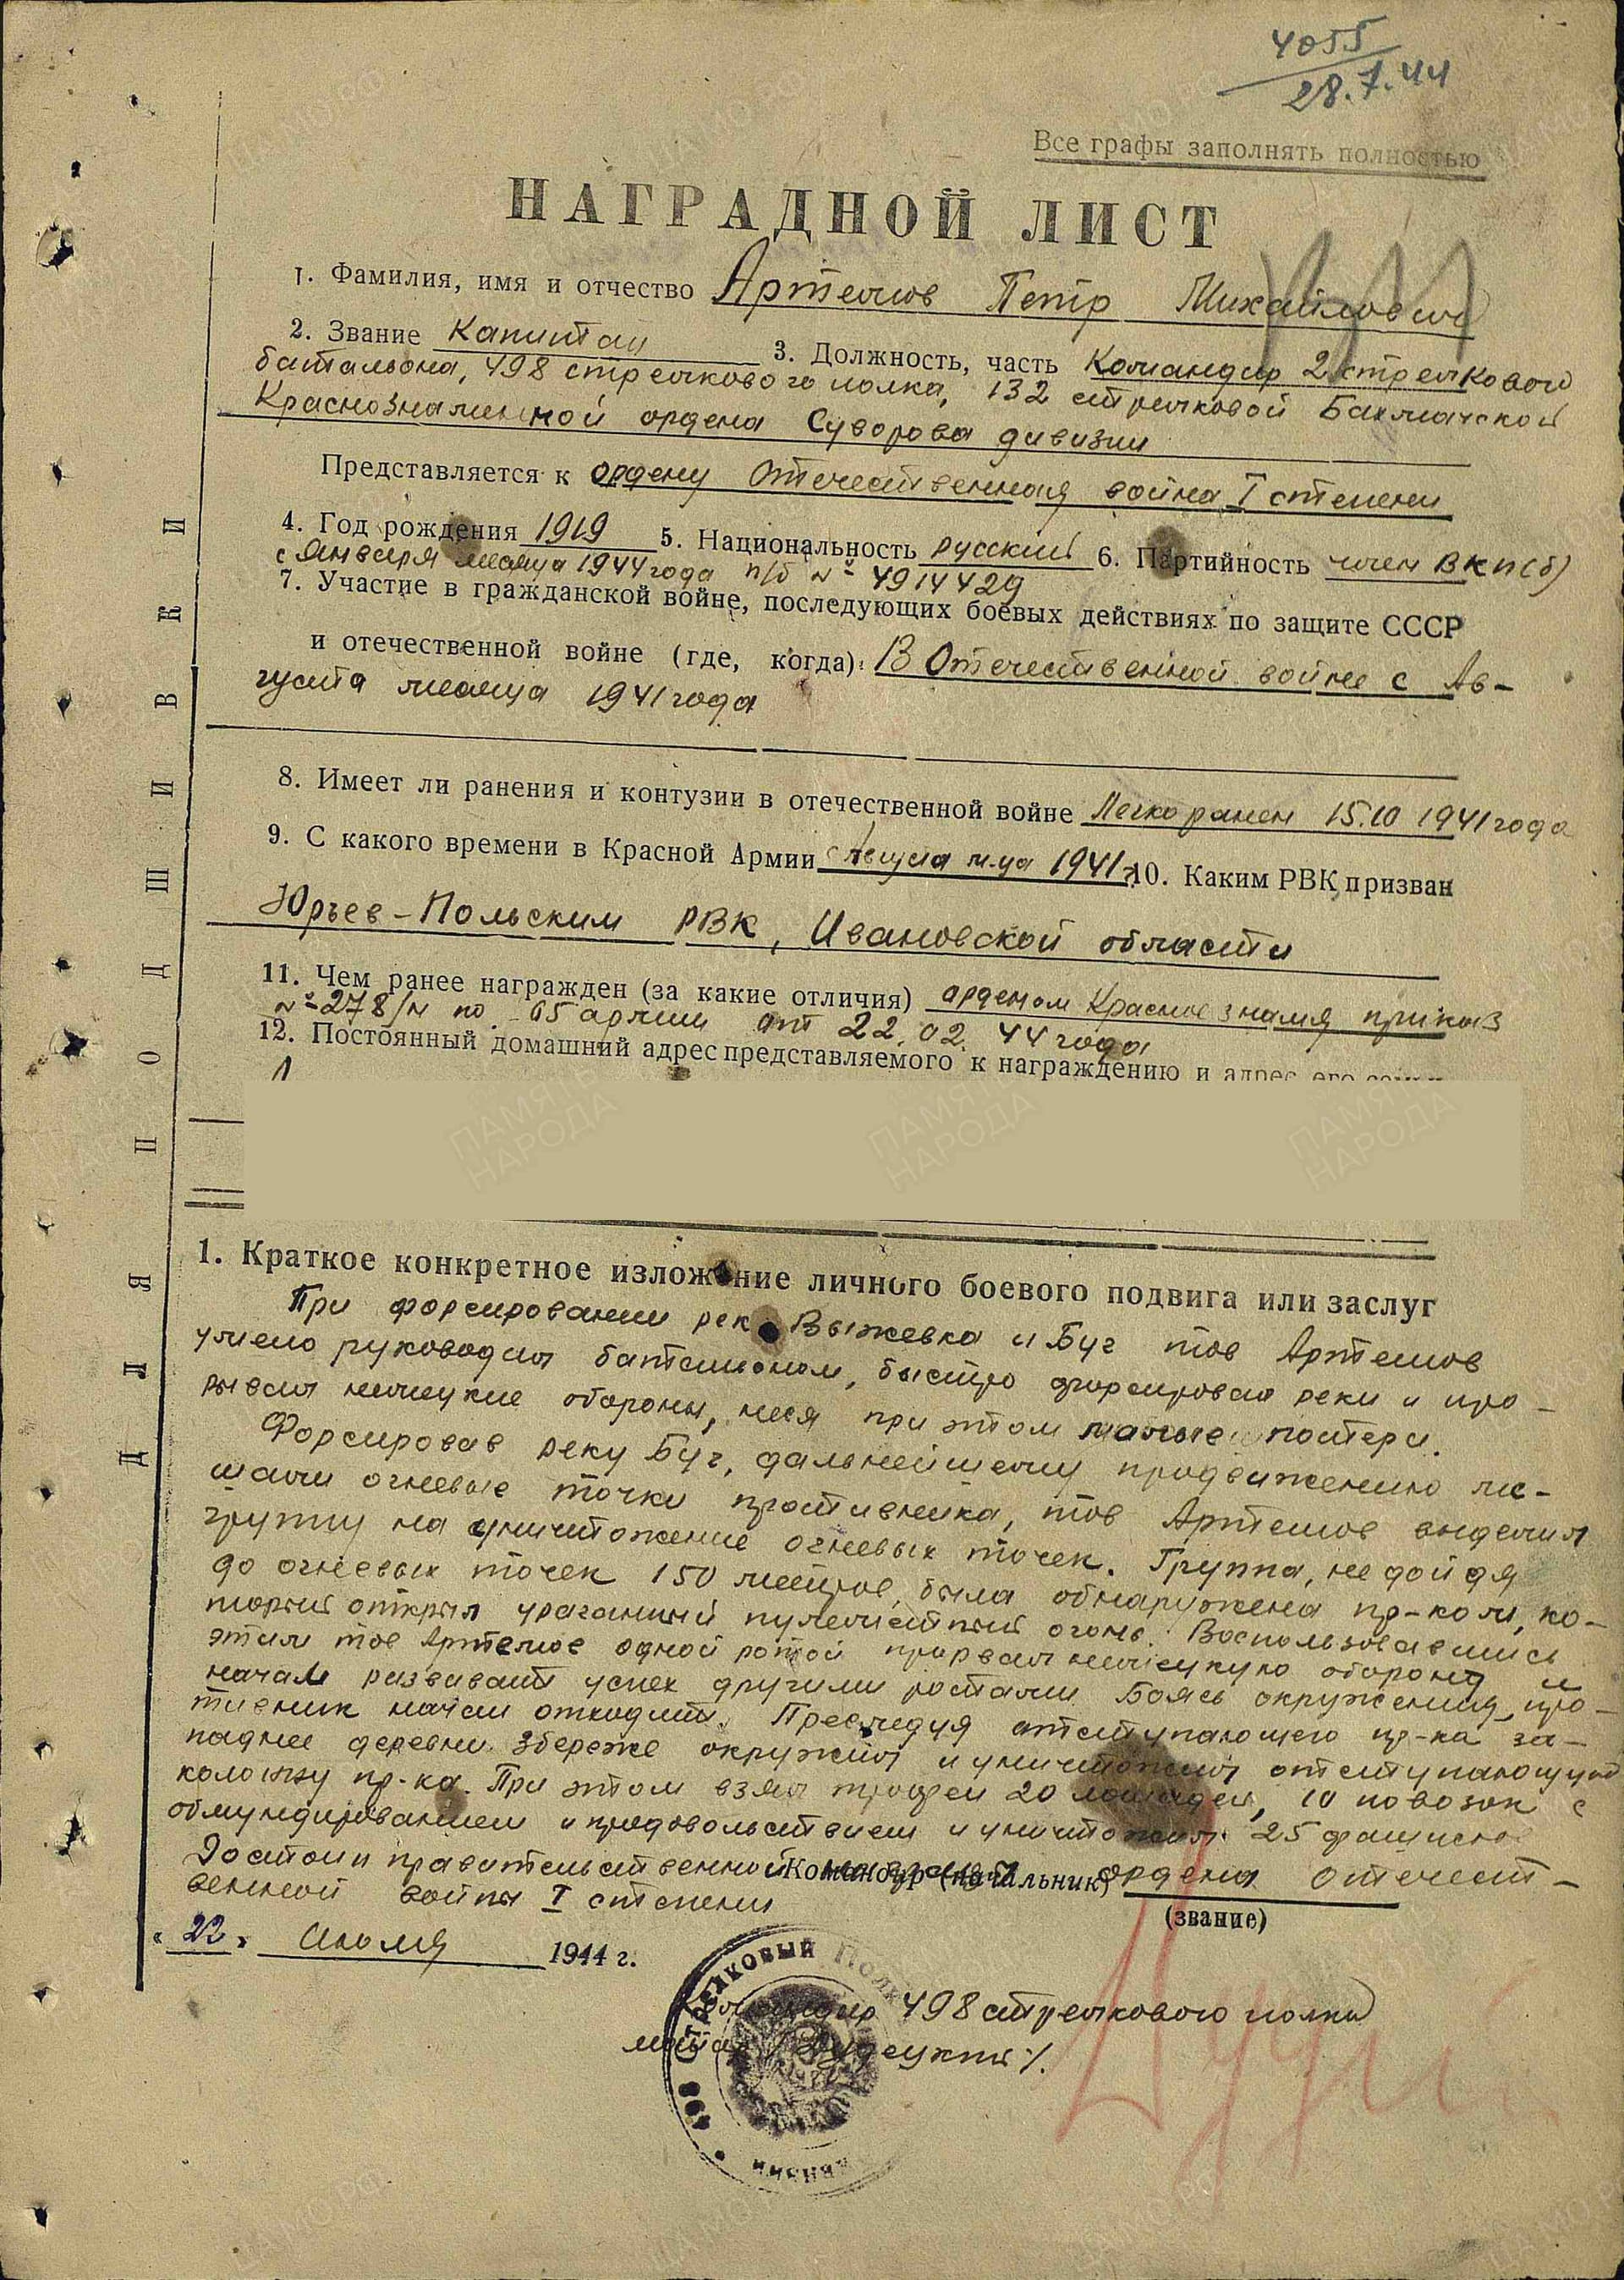 4055
28.7.44
Все графы заполнять полностью
НАГРАДНОЙ ЛИСТ
1. Фамилия, имя и отчество Артемов Петр Михайлович
2. Звание Капитан 3. Должность, часть Командир 2 стрелкового
батальона, 498 стрелкового полка, 132 стрелковой Бахмачской
Краснознаменной ордена Суворова дивизии
Представляется к ордену Отечественная война I степени
4. Год рождения 1919 5. Национальность русский 6. Партийность член ВКП(б)
с января месяца 1944 года п/б № 4914429
7. Участие в гражданской войне, последующих боевых действиях по защите СССР
и отечественной войне (где, когда): В Отечественной войне с Ав-
густа месяца 1941 года
8. Имеет ли ранения и контузии в отечественной войне Легко ранен 15.10 1941 года
9. С какого времени в Красной Армии с Августа м-ца 1941 г 10. Каким РВК призван
Юрьев-Польским РВК, Ивановской области
11. Чем ранее награжден (за какие отличия) орденом Красное знамя приказ
№ 278/н по 65 армии от 22.02.44 года
12. Постоянный домашний адрес представляемого к награждению и адрес его семьи
ДЛЯ ПОДШИВКИ
1. Краткое конкретное изложение личного боевого подвига или заслуг
При форсировании рек Выжевка и Буг тов Артемов
умело руководил батальоном, быстро форсировал реки и про-
рывал немецкие обороны, неся при этом малые потери.
Форсировав реку Буг, дальнейшему продвижению ме-
шали огневые точки противника, тов Артемов выделил
группу на уничтожение огневых точек. Группа, не дойдя
до огневых точек 150 метров, была обнаружена пр-ком, ко-
торый открыл ураганный пулеметный огонь. Воспользовавшись
этим тов Артемов одной ротой прорвал немецкую оборону и
начал развивать успех другими ротами. Боясь окружения, про-
тивник начал отходить. Преследуя отступающего пр-ка за-
паднее деревни Збереже окружил и уничтожил отступающую
колонну пр-ка. При этом взял трофеи 20 лошадей, 10 повозок с
обмундированием и продовольствием и уничтожил 25 фашистов
Достоин правительственной награды ордена Отечест-
Командир (начальник)
венной войны I степени
(звание)
« 22 » июля 1944 г.
498 Стрелковый Полк
Командир 498 стрелкового полка
майор /Дудецкий/.